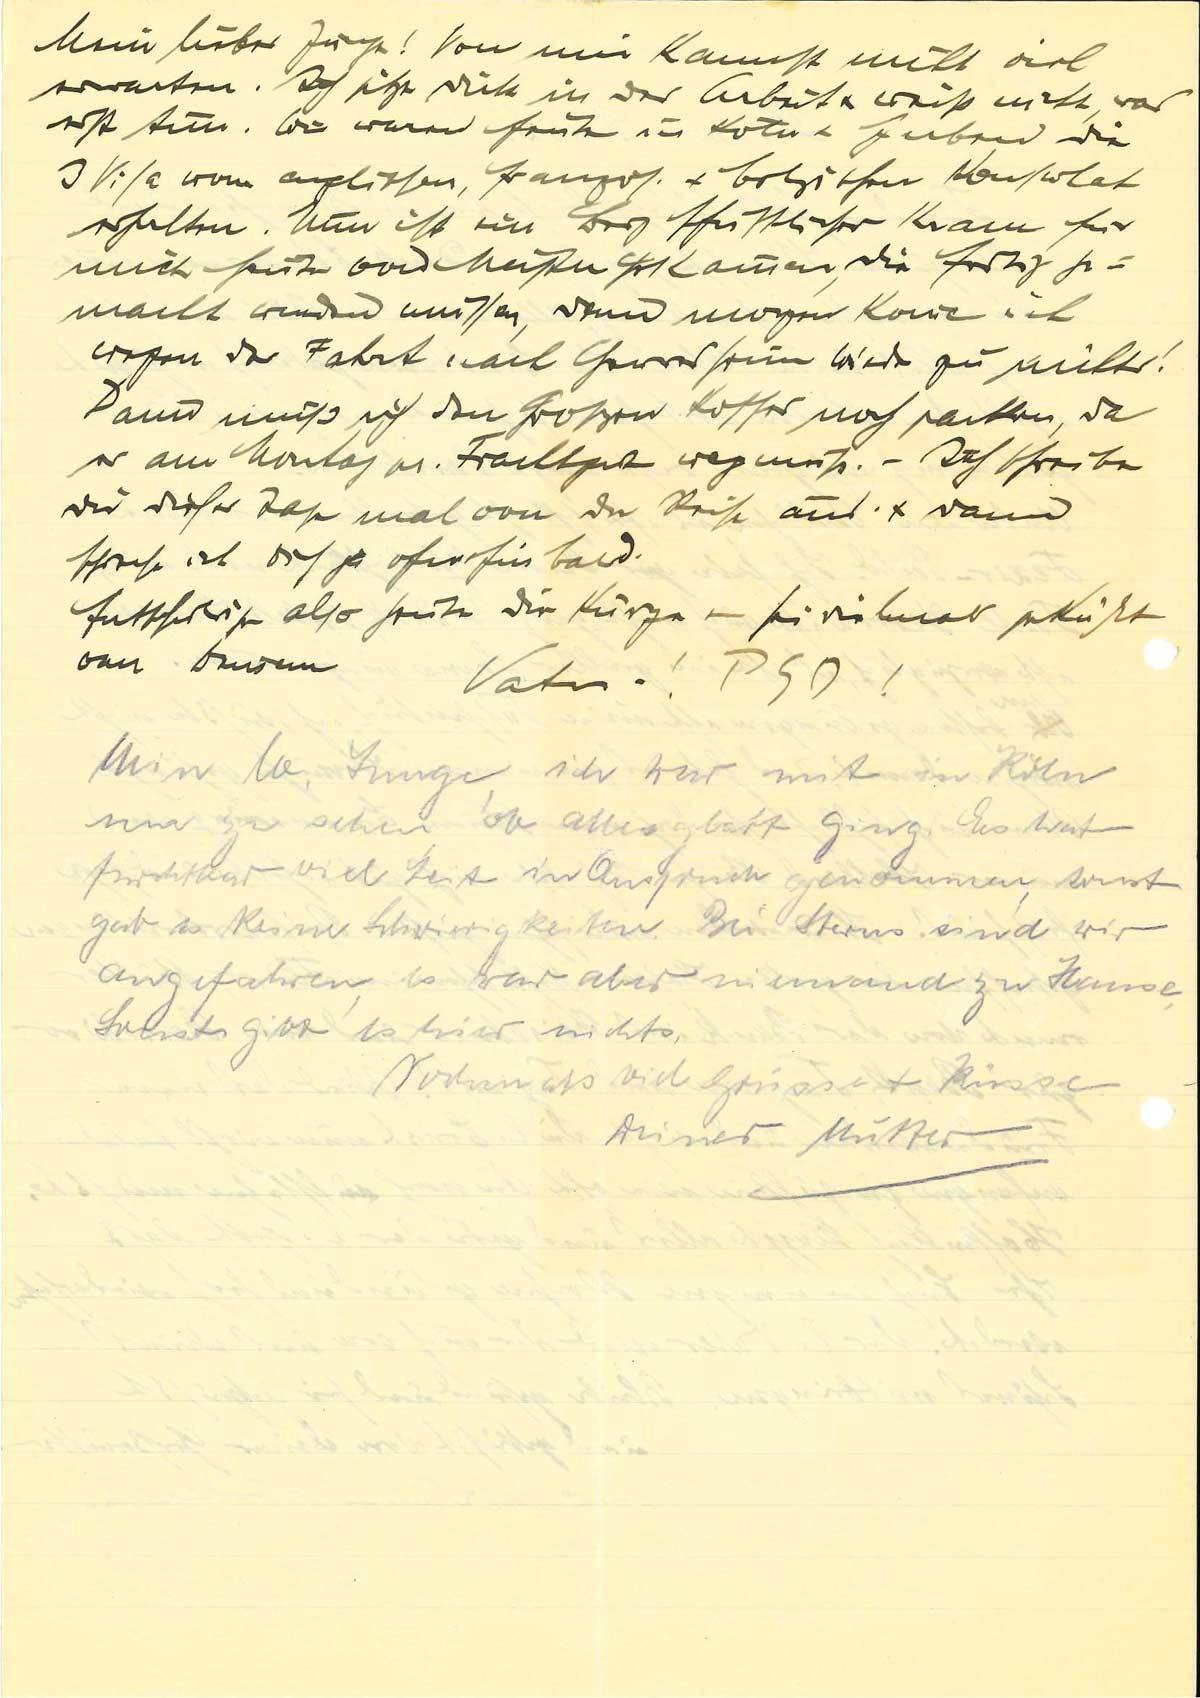 Mein lieber Junge! Von mir kannst nicht viel
erwarten. Ich sitze dick in der Arbeit & weiß nicht, was
erst tun. Wir waren heute in Köln & haben die
3 Visa vom englischen, französ. & belgischen Konsulat
erhalten. Nun ist ein Berg schriftlicher Kram für
mich heute, die fertig ge=
macht werden müssen, denn morgen komme ich
wegen der Fahrt nach wieder zu nichts!
Dann muß ich den Großen Koffer noch packen, da
er am Montag pr. Frachtgut weg muß. – Ich schreibe
dir dieser Tage mal von der Reise aus & dann
spreche ich dich ja ohnehin bald.
Entschuldige also heute die Kürze & sei vielmals geküßt
von Deinem
Vater -!
Mein lb. Junge, ich war mit in Köln
um zu sehen, ob alles glatt ging. Es hat
furchtbar viel Zeit in Anspruch genommen, sonst
gab es keine Schwierigkeiten. Bei Sterns sind wir
angefahren, es war aber niemand zu Hause,
Sonst gibt es hier nichts.
Nochmals viel Grüsse & Küsse
Deiner Mutter